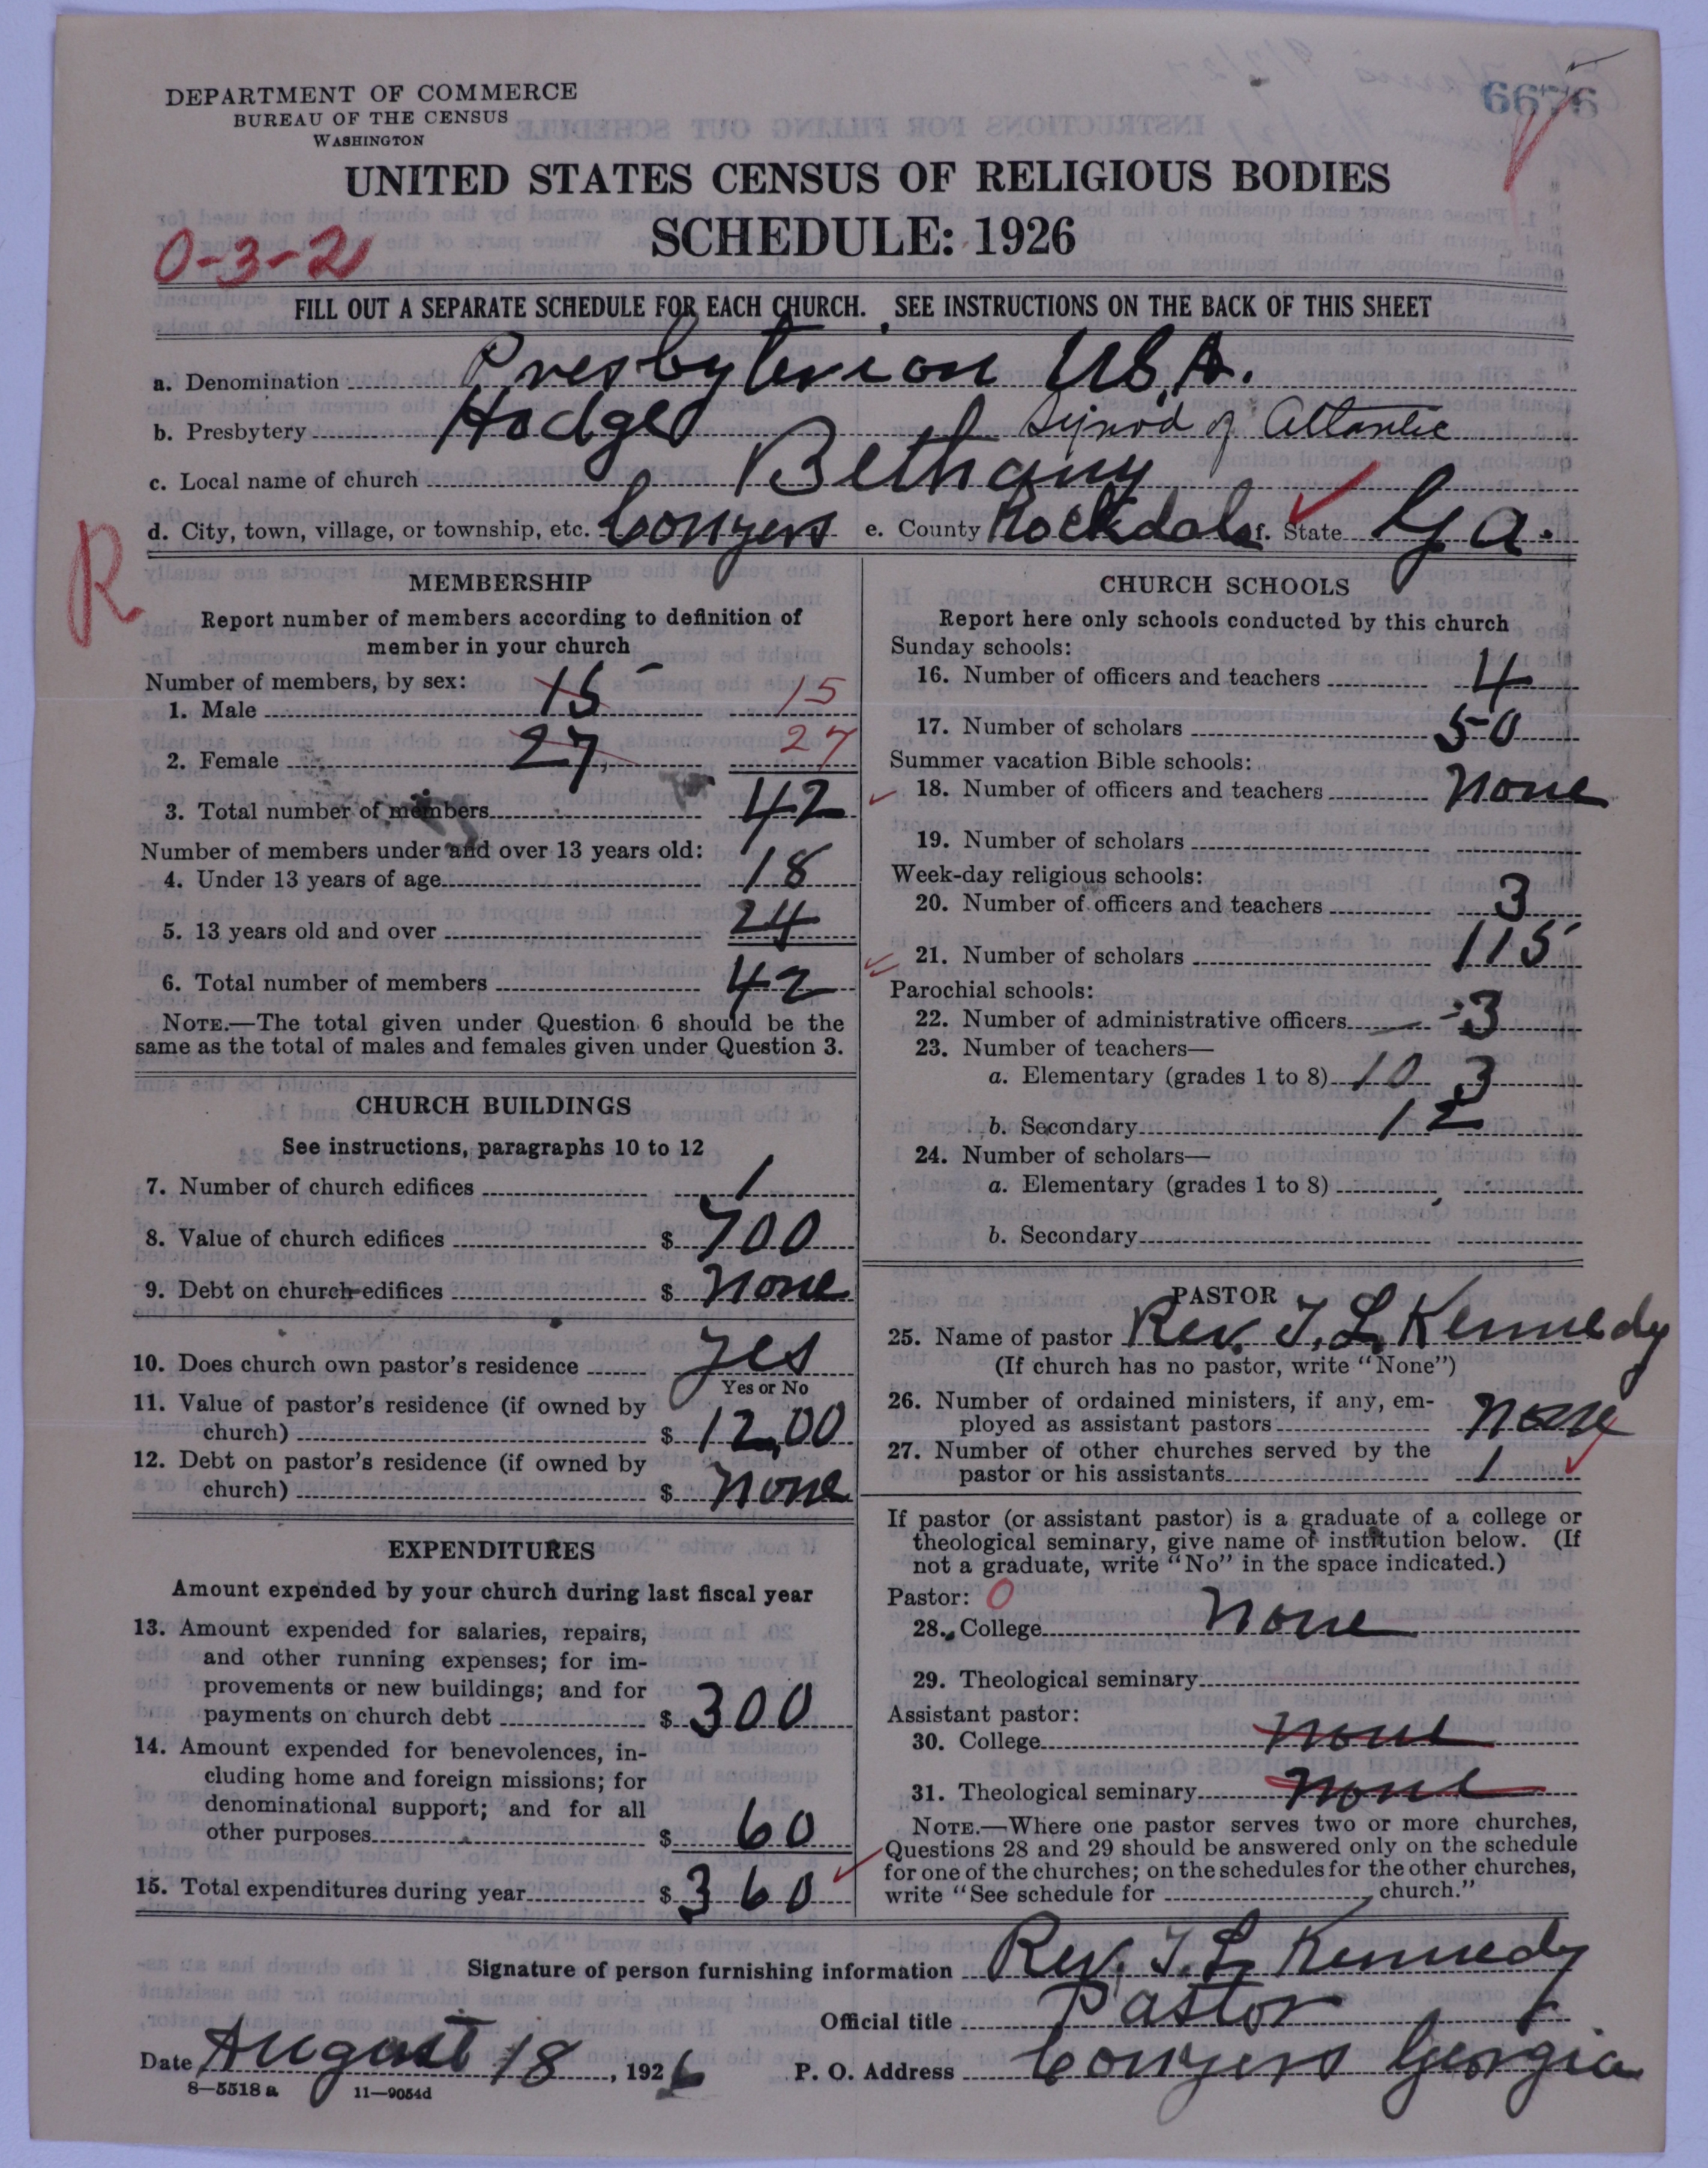 6676
DEPARTMENT OF COMMERCE
BUREAU OF THE CENSUS
WASHINGTON
UNITED STATES CENSUS OF RELIGIOUS BODIES
SCHEDULE: 1926
0-3-2
FILL OUT A SEPARATE SCHEDULE FOR EACH CHURCH. SEE INSTRUCTIONS ON THE BACK OF THIS SHEET
a. Denomination Presbyterian U.S.A.
b. Presbytery Hodge Synod of Atlantic
c. Local name of church Bethany
d. City, town, village, or township, etc. Conyers e. County Rockdale f. State Ga.
R
MEMBERSHIP
Report number of members according to definition of
member in your church
Number of members, by sex:
1. Male 15 15
2. Female 27 27
3. Total number of members 42
Number of members under and over 13 years old:
4. Under 13 years of age 18
5. 13 years old and over 24
6. Total number of members 42
NOTE.—The total given under Question 6 should be the
same as the total of males and females given under Question 3.
CHURCH BUILDINGS
See instructions, paragraphs 10 to 12
7. Number of church edifices 1
8. Value of church edifices $ 700
9. Debt on church edifices $ none
10. Does church own pastor's residence yes
Yes or No
11. Value of pastor's residence (if owned by
church) $ 12,00
12. Debt on pastor's residence (if owned by
church) $ none
EXPENDITURES
Amount expended by your church during last fiscal year
13. Amount expended for salaries, repairs,
and other running expenses; for im-
provements or new buildings; and for
payments on church debt $ 300
14. Amount expended for benevolences, in-
cluding home and foreign missions; for
denominational support; and for all
other purposes $ 60
15. Total expenditures during year $ 360
CHURCH SCHOOLS
Report here only schools conducted by this church
Sunday schools:
16. Number of officers and teachers 4
17. Number of scholars 50
Summer vacation Bible schools:
18. Number of officers and teachers none
19. Number of scholars
Week-day religious schools:
20. Number of officers and teachers 3
21. Number of scholars 115
Parochial schools:
22. Number of administrative officers 3
23. Number of teachers—
a. Elementary (grades 1 to 8) 10 3
b. Secondary 12
24. Number of scholars—
a. Elementary (grades 1 to 8)
b. Secondary
PASTOR
25. Name of pastor Rev. T. L. Kennedy
(If church has no pastor, write "None")
26. Number of ordained ministers, if any, em-
ployed as assistant pastors none
27. Number of other churches served by the
pastor or his assistants 1
If pastor (or assistant pastor) is a graduate of a college or
theological seminary, give name of institution below. (If
not a graduate, write "No" in the space indicated.)
Pastor: 0
28. College none
29. Theological seminary
Assistant pastor:
30. College none
31. Theological seminary none
NOTE.—Where one pastor serves two or more churches,
Questions 28 and 29 should be answered only on the schedule
for one of the churches; on the schedules for the other churches,
write "See schedule for church."
Signature of person furnishing information Rev. T. L. Kennedy
Official title Pastor
Date August 18, 1926 P. O. Address Conyers Georgia
8—5518 a 11—9054d